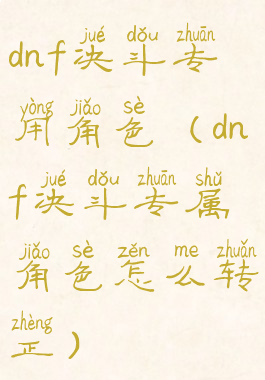 jué dǒu zhuān
dnf决斗专
yòng jiǎo sè
用角色（dn
jué dǒu zhuān shǔ
f决斗专属
jiǎo sè zěn me zhuǎn
角色怎么转
zhèng
正）